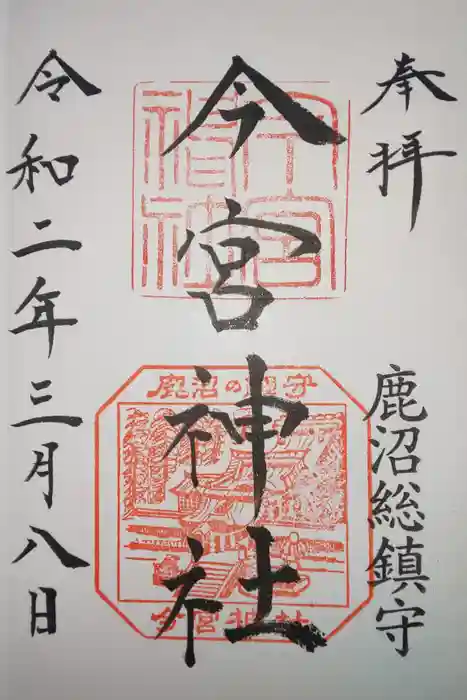 奉拝
鹿沼総鎮守
今宮神社
鹿沼の鎮守
今宮神社
令和二年三月八日